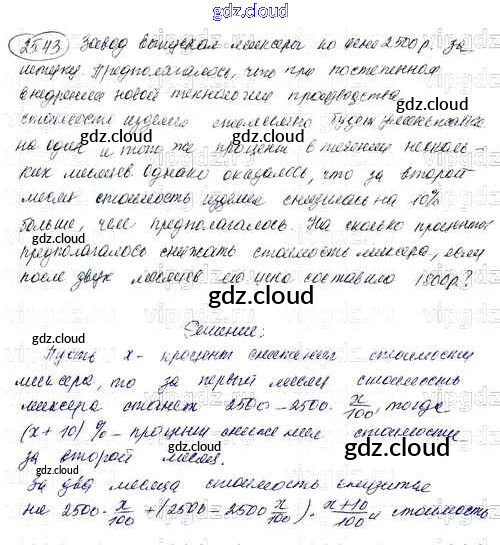 2543 Завод выпускал миксеры по цене 2500 р. за
штуку. Предполагалось, что при постепенном
внедрении новой технологии производства
стоимость изделия ежемесячно будет уменьшаться
gdz.cloud gdz.cloud
на один и тот же процент в течении несколь-
ких месяцев. Однако оказалось, что за второй
месяц стоимость изделия снизилась на 10%
gdz.cloud
больше, чем предполагалось. На сколько процентов
gdz.cloud
предполагалось снижать стоимость миксера, если
после двух месяцев его цена составила 1800р?
gdz.cloud
Решение:
gdz.cloud
Пусть x - процент снижения стоимости
миксера, то за первый месяц стоимость
gdz.cloud
миксера станет 2500 - 2500 · x/100, тогда
(x + 10) % - процент снижения стоимости
gdz.cloud
за второй месяц.
gdz.cloud
За два месяца стоимость снизится
gdz.cloud
на 2500 · x/100 + (2500 - 2500 x/100) · x+10/100 и стоимость